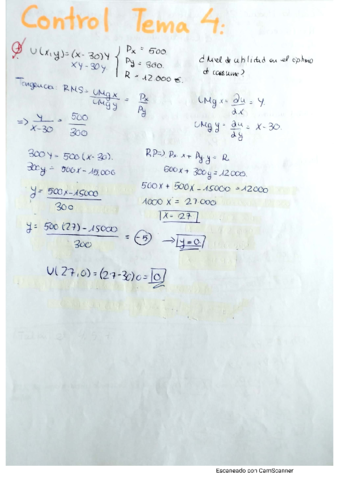 Control Tema 4:
U(x,y)=(x-30)y
xy-30y
Px = 500
Py = 300
R = 12000 €.
¿Nivel de utilidad en el óptimo
d consumo?
Tangencia: RMS = UMgx/UMgy = Px/Py
UMgx = ∂u/∂x = y.
UMgy = ∂u/∂y = x-30.
=> y/x-30 = 500/300
300y = 500(x-30).
300y = 500x-15000
y = 500x-15000/300
RP=> Px x + Py y = R.
500x + 300y = 12000.
500x + 500x - 15000 = 12000
1000x = 27000
x = 27
y = 500(27)-15000/300 = -5 → y=0
U(27,0) = (27-30)0 = 0
Escaneado con CamScanner